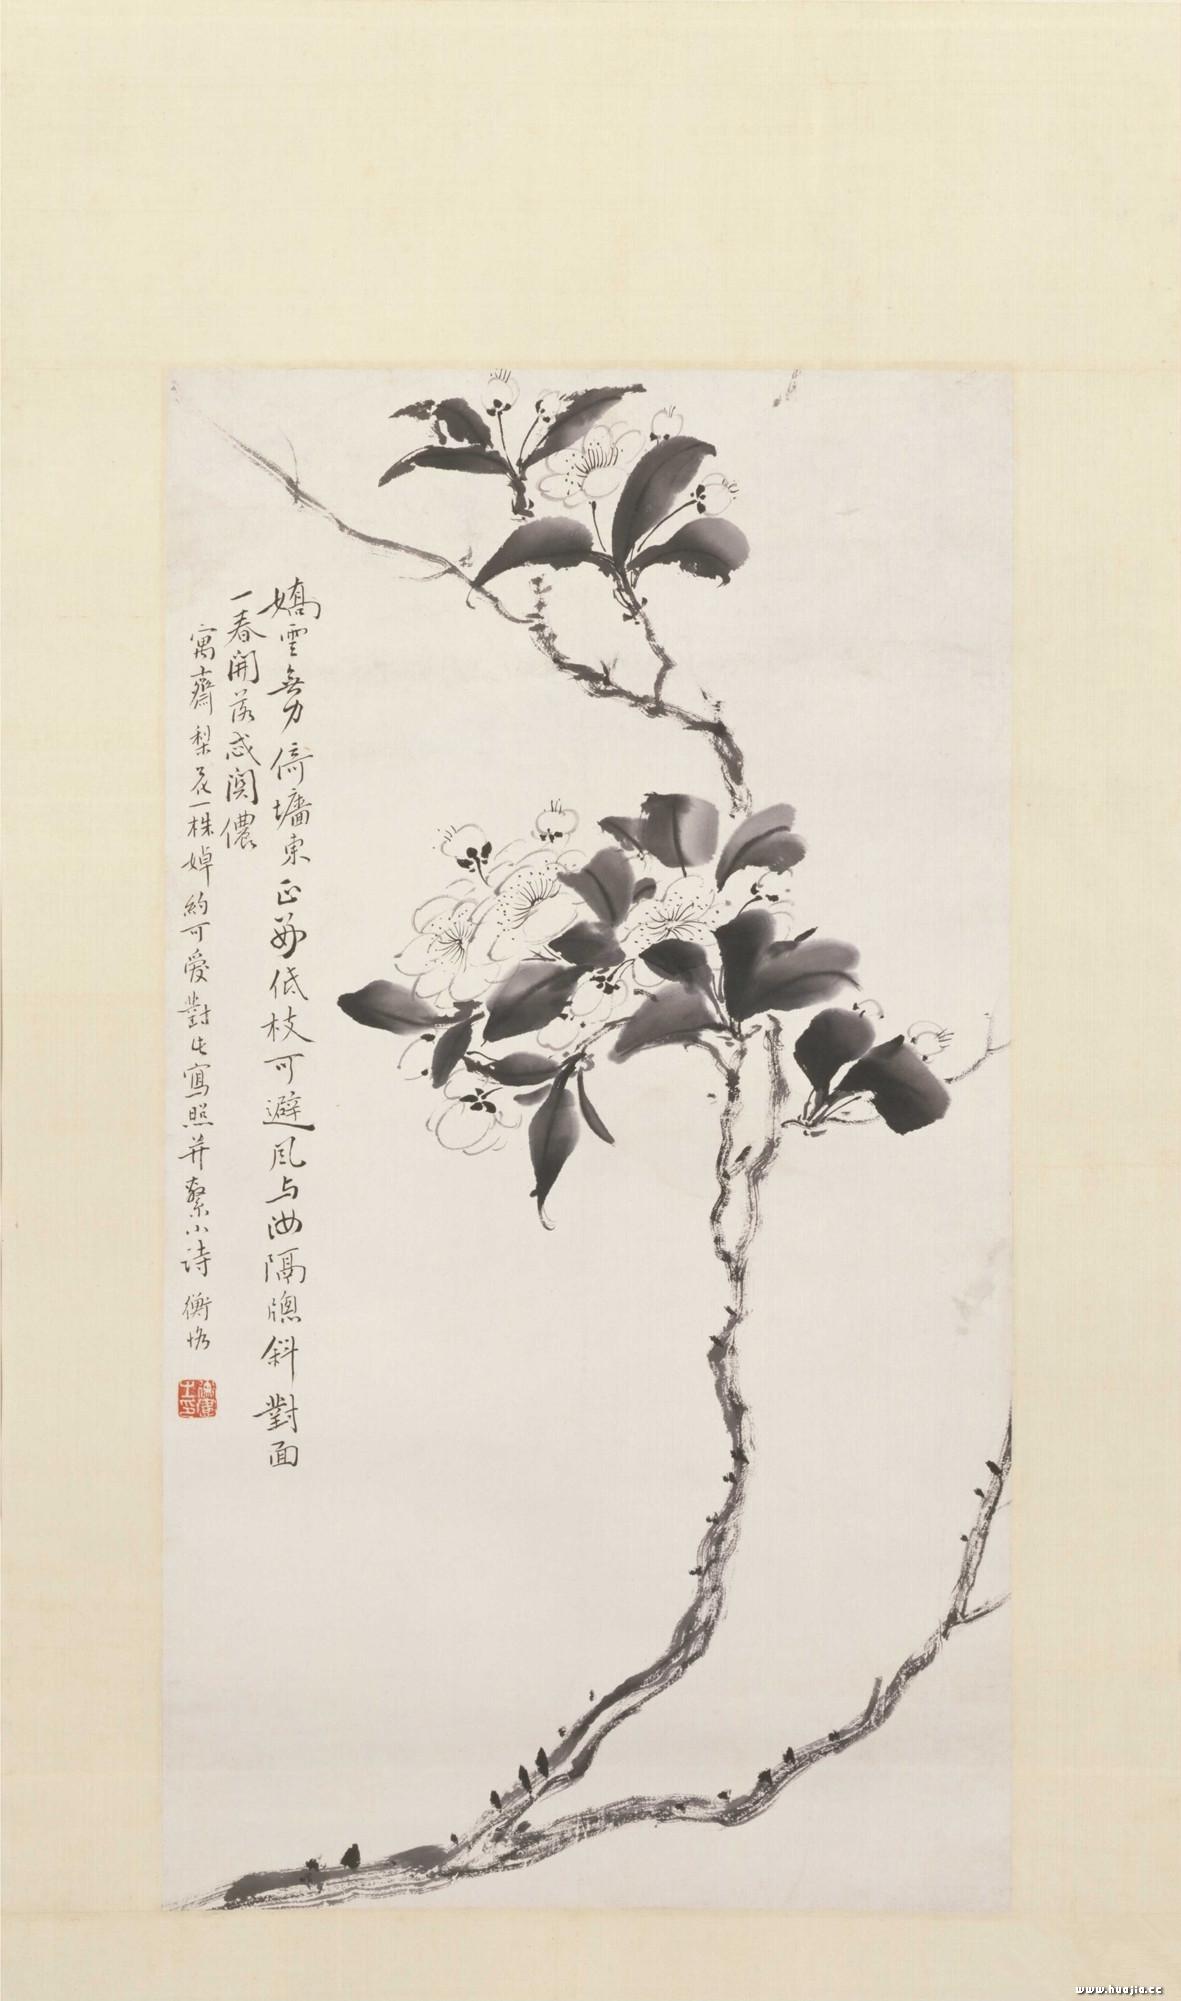 嬌雲無力倚墻東正好低枝可避風与汝隔牕斜對面
一春開落感関儂
寓齋梨花一株婥約可愛對此寫照并繫小詩 衡恪
www.huajia.cc